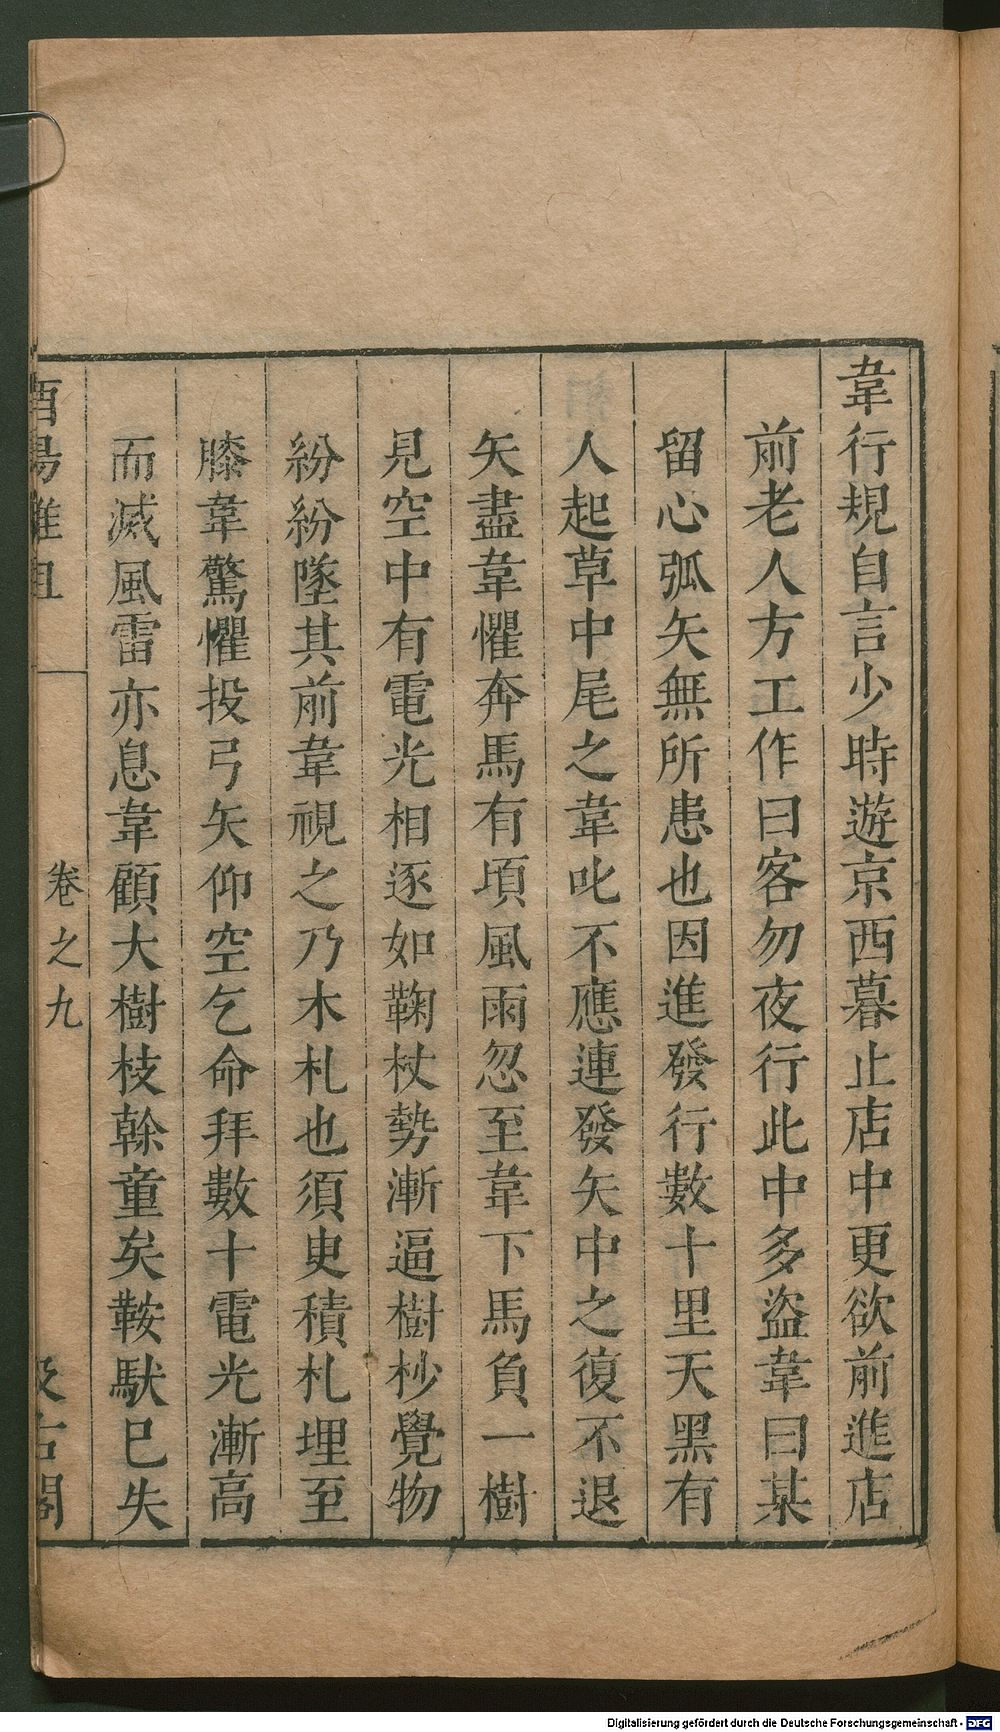 韋行規自言少時遊京西暮止店中更欲前進店
前老人方工作曰客勿夜行此中多盜韋曰某
留心弧矢無所患也因進發行數十里天黑有
人起草中尾之韋叱不應連發矢中之復不退
矢盡韋懼奔馬有頃風雨忽至韋下馬負一樹
見空中有電光相逐如鞠杖勢漸逼樹杪覺物
紛紛墜其前韋視之乃木札也須臾積札埋至
膝韋驚懼投弓矢仰空乞命拜數十電光漸高
而滅風雷亦息韋顧大樹枝榦童矣鞍馱已失
酉陽雜俎
卷之九
汲古閣
Digitalisierung gefördert durch die Deutsche Forschungsgemeinschaft - DFG